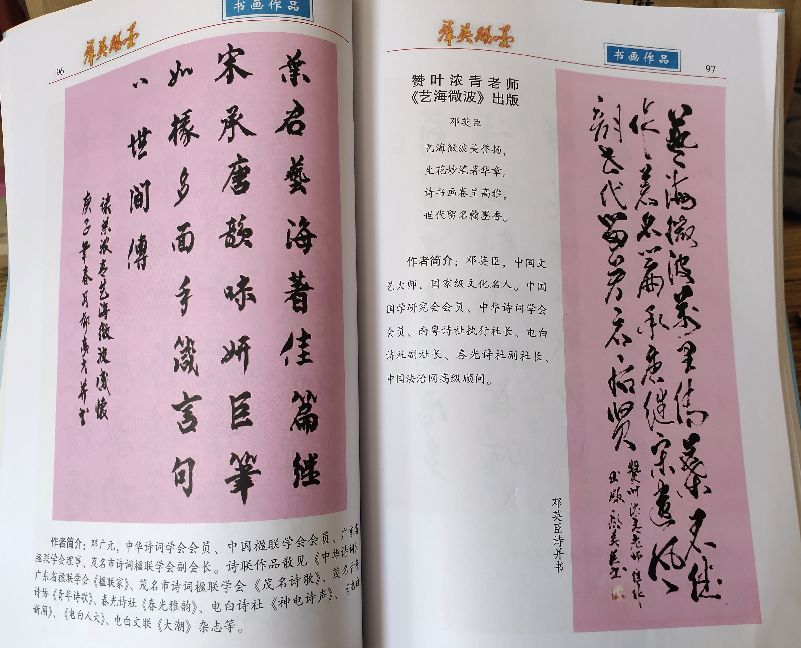 96
书画作品
葉君藝海著佳篇继
宋承唐韻味妍巨筆
如椽多面手箴言句
々世間傳
读葉浓青艺海微波感懷
庚子年春月邓广元并书
作者简介：邓广元，中华诗词学会会员、中国楹联学会会员、广东省
楹联学会理事、茂名市诗词楹联学会副会长。诗联作品散见《中华诗词》、
广东省楹联学会《楹联家》、茂名市诗词楹联学会《茂名诗歌》、茂名青年
诗协《青年诗歌》、春光诗社《春光雅韵》、电白诗社《神电诗声》、《电白
新闻》、《电白人大》、电白文联《大潮》杂志等。
书画作品
97
赞叶浓青老师
《艺海微波》出版
邓英臣
艺海微波美誉扬，
生花妙笔著华章。
诗书画卷呈高雅，
世代留名翰墨香。
作者简介：邓英臣，中国文
艺大师，国家级文化名人。中国
国学研究会会员、中华诗词学会
会员、南粤诗社执行社长、电白
诗社副社长、春光诗社副社长、
中国法治网高级顾问。
藝海微波萬里傳葉
名篇承唐继宋遗風
代留芳
邓英臣诗并书